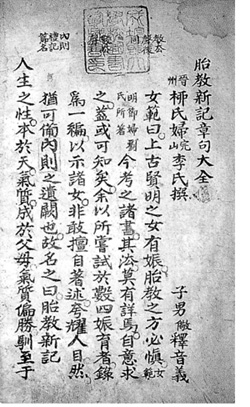 胎教新記章句大全
晉州柳氏婦完山李氏撰
子男儆釋音義
女範曰上古賢明之女有娠胎教之方必慎女範
明節婦劉氏所著今考之諸書其法莫有詳焉自意求
之蓋或可知矣余以所嘗試於數四娠育者錄
爲一編以示諸女非敢擅自著述夸耀人目然
猶可備內則之遺闕也故名之曰胎教新記
內則
禮記
篇名
人生之性本於天氣質成於父母氣質偏勝馴至于